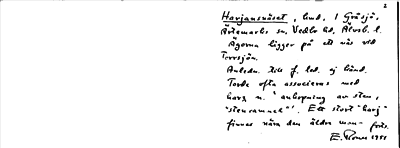 2
Harjansnäset, hmd, i Gräsjö,
Ärtemarks sn, Vedbo hd, Älvsb. l.
Ägorna ligger på ett näs vid
Torrsjön.
Anledn. till f. led. ej känd.
Torde ofta associeras med
harg n. 'anhopning av sten,
"stenrammel"'. Ett stort "harj"
finnes nära den äldre man- forts.
E. 1951